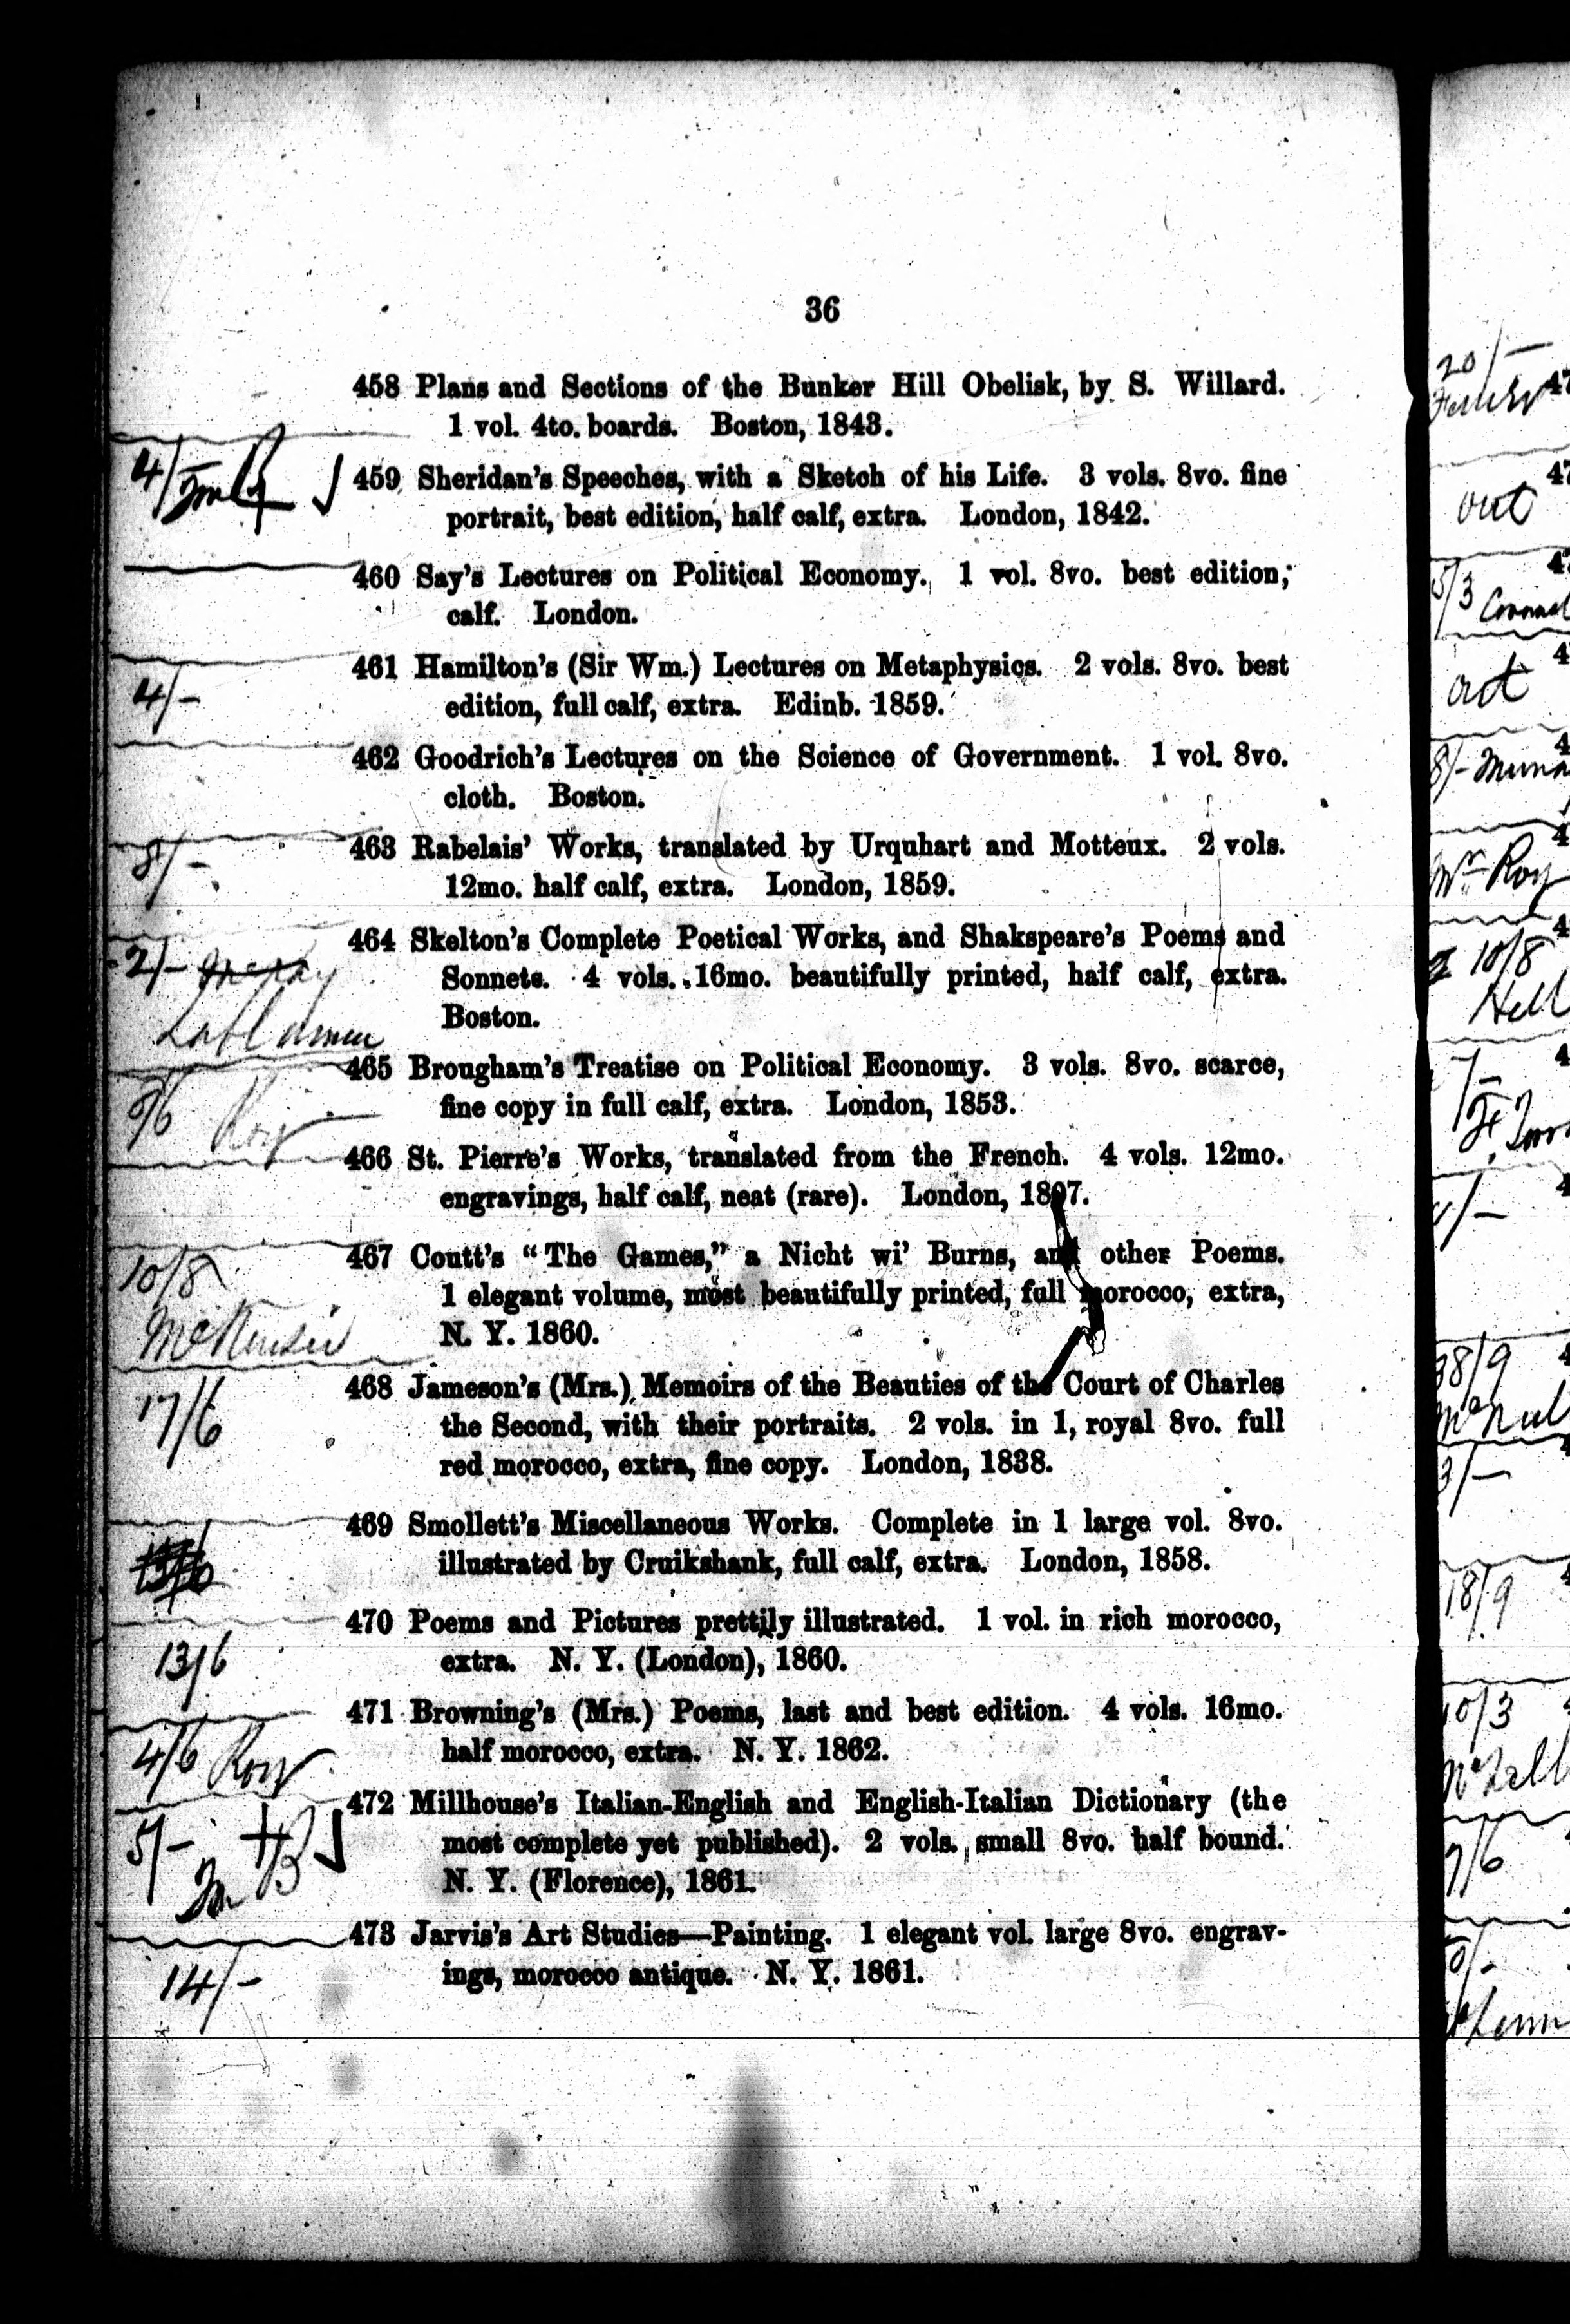 36
458 Plans and Sections of the Bunker Hill Obelisk, by S. Willard.
1 vol. 4to. boards. Boston, 1843.
4/-
459 Sheridan's Speeches, with a Sketch of his Life. 3 vols. 8vo. fine
portrait, best edition, half calf, extra. London, 1842.
460 Say's Lectures on Political Economy. 1 vol. 8vo. best edition,
calf. London.
461 Hamilton's (Sir Wm.) Lectures on Metaphysics. 2 vols. 8vo. best
4/-
edition, full calf, extra. Edinb. 1859.
462 Goodrich's Lectures on the Science of Government. 1 vol. 8vo.
cloth. Boston.
463 Rabelais' Works, translated by Urquhart and Motteux. 2 vols.
8/-
12mo. half calf, extra. London, 1859.
464 Skelton's Complete Poetical Works, and Shakspeare's Poems and
2/-
Sonnets. 4 vols. 16mo. beautifully printed, half calf, extra.
Boston.
465 Brougham's Treatise on Political Economy. 3 vols. 8vo. scarce,
Roy
fine copy in full calf, extra. London, 1853.
466 St. Pierre's Works, translated from the French. 4 vols. 12mo.
engravings, half calf, neat (rare). London, 1807.
467 Coutt's "The Games," a Nicht wi' Burns, and other Poems.
10/8
1 elegant volume, most beautifully printed, full morocco, extra,
McKenzie
N. Y. 1860.
468 Jameson's (Mrs.) Memoirs of the Beauties of the Court of Charles
17/6
the Second, with their portraits. 2 vols. in 1, royal 8vo. full
red morocco, extra, fine copy. London, 1838.
469 Smollett's Miscellaneous Works. Complete in 1 large vol. 8vo.
illustrated by Cruikshank, full calf, extra. London, 1858.
470 Poems and Pictures prettily illustrated. 1 vol. in rich morocco,
13/6
extra. N. Y. (London), 1860.
471 Browning's (Mrs.) Poems, last and best edition. 4 vols. 16mo.
4/6 Roy
half morocco, extra. N. Y. 1862.
472 Millhouse's Italian-English and English-Italian Dictionary (the
5/-
most complete yet published). 2 vols. small 8vo. half bound.
N. Y. (Florence), 1861.
473 Jarvis's Art Studies—Painting. 1 elegant vol. large 8vo. engrav-
14/-
ings, morocco antique. N. Y. 1861.
20/-
out
5/3
out
8/-
Mr Roy
10/8
38/9
3/-
18/9
10/3
7/6